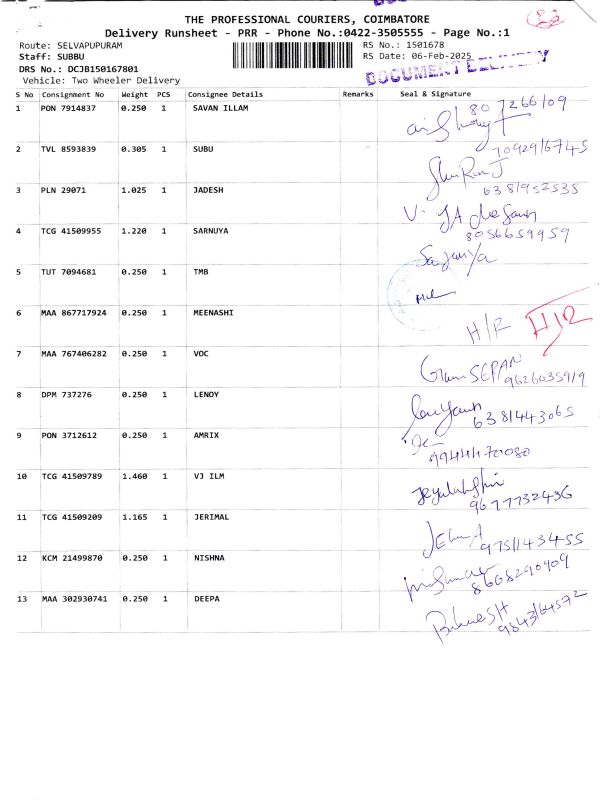 THE PROFESSIONAL COURIERS, COIMBATORE
Delivery Runsheet - PRR - Phone No.:0422-3505555 - Page No.:1
Route: SELVAPUPURAM RS No.: 1501678
Staff: SUBBU RS Date: 06-Feb-2025
DOCUMENT DELIVERY
DRS No.: DCJB150167801
Vehicle: Two Wheeler Delivery
S No Consignment No Weight PCS Consignee Details Remarks Seal & Signature
1 PON 7914837 0.250 1 SAVAN ILLAM
2 TVL 8593839 0.305 1 SUBU
3 PLN 29071 1.025 1 JADESH
4 TCG 41509955 1.220 1 SARNUYA 8056659959
5 TUT 7094681 0.250 1 TMB
6 MAA 867717924 0.250 1 MEENASHI H/R H/R
7 MAA 767406282 0.250 1 VOC
8 DPM 737276 0.250 1 LENOY 6381443065
9 PON 3712612 0.250 1 AMRIX
10 TCG 41509789 1.460 1 VJ ILM 9677732436
11 TCG 41509209 1.165 1 JERIMAL 9751143455
12 KCM 21499870 0.250 1 NISHNA 8668290909
13 MAA 302930741 0.250 1 DEEPA